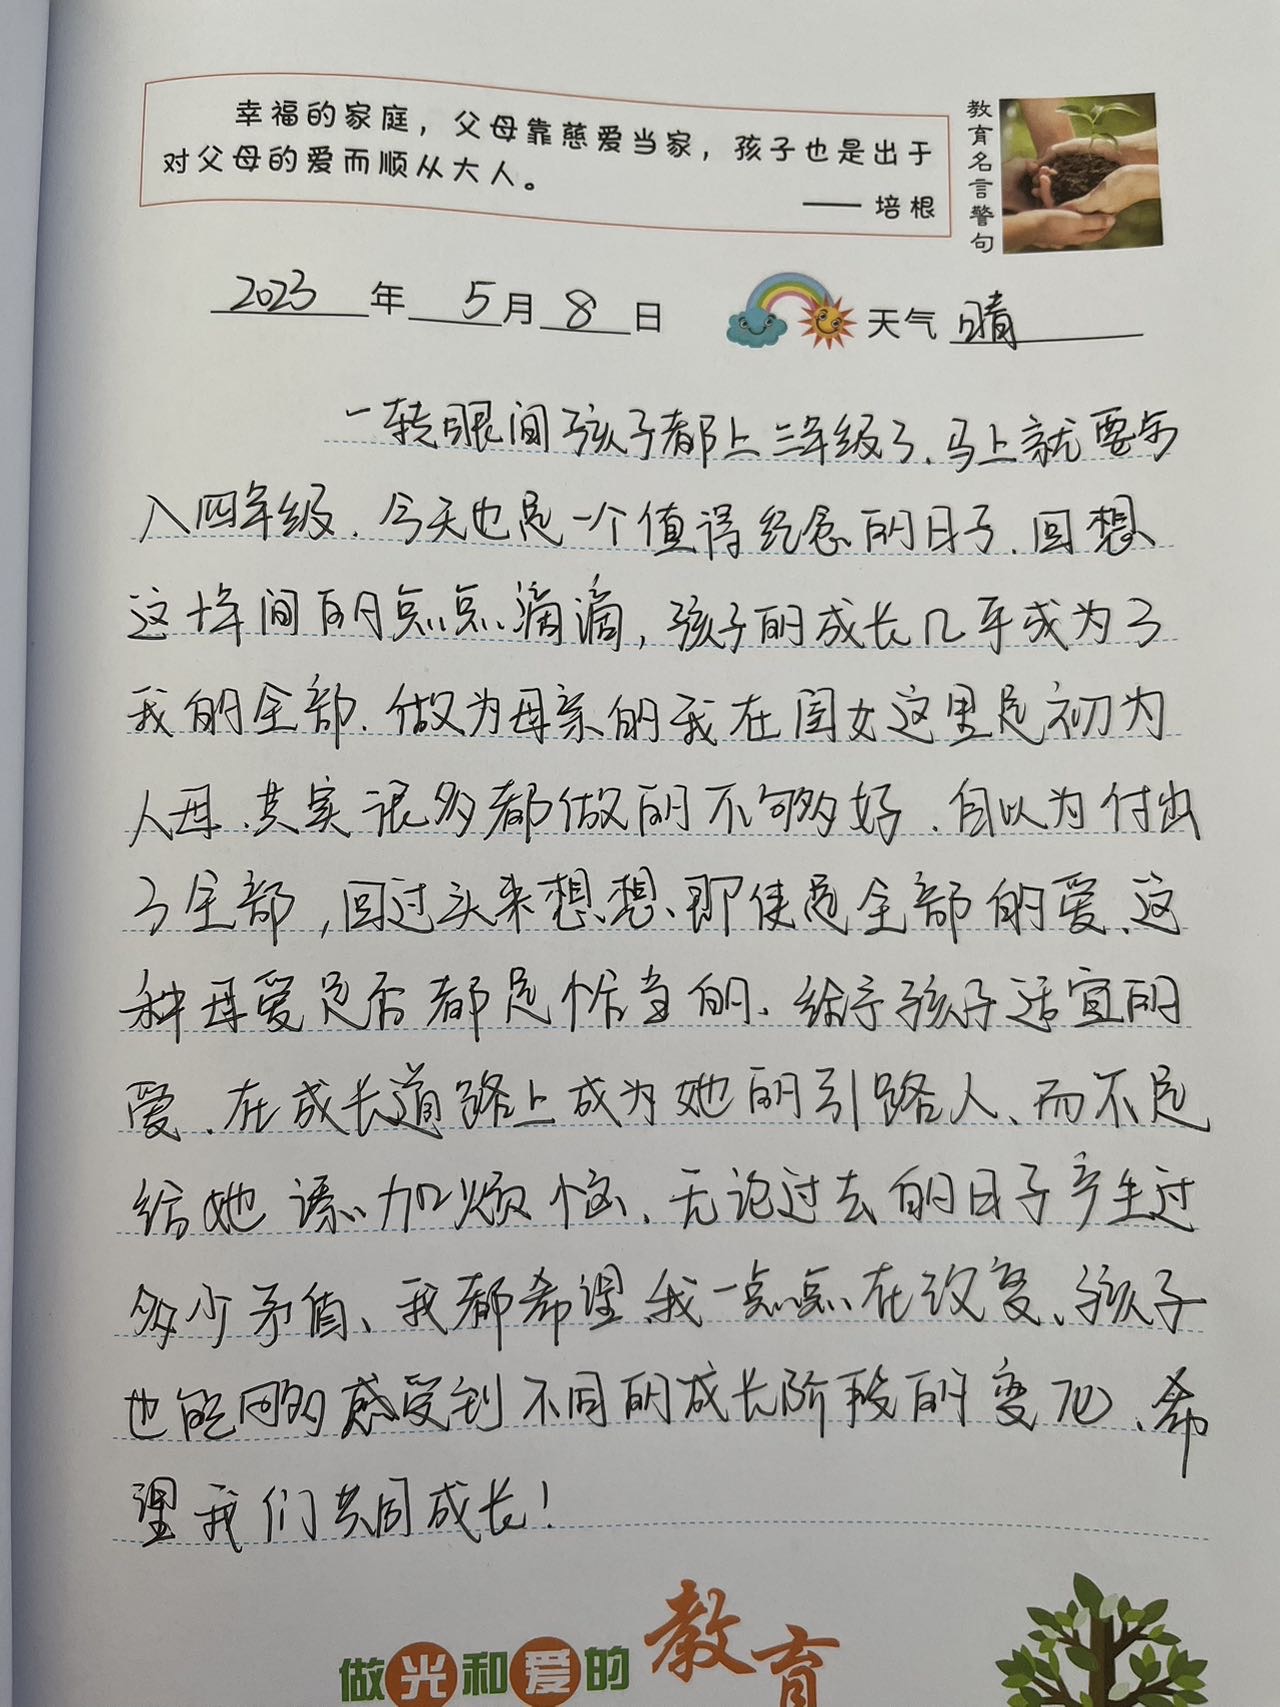 幸福的家庭，父母靠慈爱当家，孩子也是出于
对父母的爱而顺从大人。
—— 培根
教育名言警句
2023 年 5 月 8 日 天气 晴
一转眼间孩子都上三年级了.马上就要步
入四年级.今天也是一个值得纪念的日子.回想
这十年间的点点滴滴,孩子的成长几乎成为了
我的全部.做为母亲的我在闺女这里是初为
人母、其实很多都做的不够好.自以为付出
了全部,回过头来想想、即使是全部的爱、这
种母爱是否都是恰当的、给予孩子适宜的
爱、在成长道路上成为她的引路人、而不是
给她添加烦恼、无论过去的日子产生过
多少矛盾、我都希望我一点点在改变、孩子
也能够感受到不同的成长阶段的变化、希
望我们共同成长!
做光和爱的教育